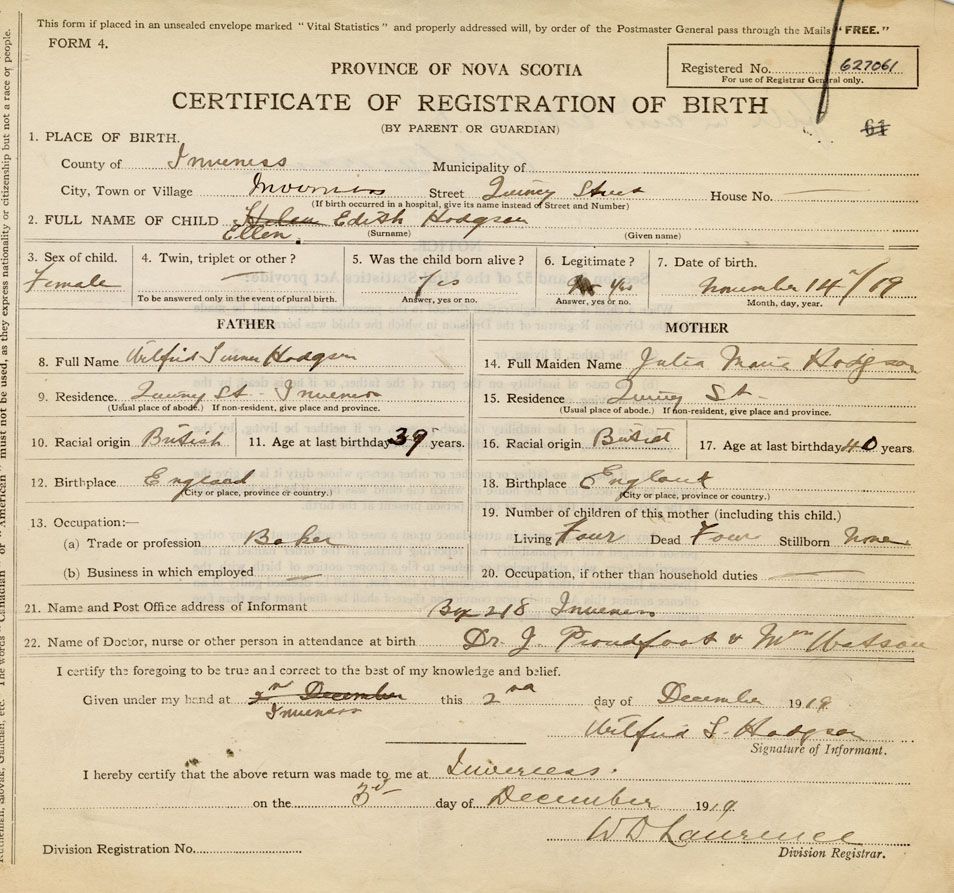 This form if placed in an unsealed envelope marked "Vital Statistics" and properly addressed will, by order of the Postmaster General pass through the Mails "FREE."
FORM 4.
Registered No. 627061
For use of Registrar General only.
PROVINCE OF NOVA SCOTIA
CERTIFICATE OF REGISTRATION OF BIRTH
(BY PARENT OR GUARDIAN)
61
1. PLACE OF BIRTH.
County of Inverness Municipality of
City, Town or Village Inverness Street Street House No.
(If birth occurred in a hospital, give its name instead of Street and Number)
2. FULL NAME OF CHILD Helen Edith Hodgson
Ellen. (Surname) (Given name)
3. Sex of child. 4. Twin, triplet or other? 5. Was the child born alive? 6. Legitimate? 7. Date of birth.
Female — Yes Yes November 14/19
To be answered only in the event of plural birth. Answer, yes or no. Answer, yes or no. Month, day, year.
FATHER
8. Full Name Wilfrid Hodgson
9. Residence. St - Inverness
(Usual place of abode.) If non-resident, give place and province.
10. Racial origin British 11. Age at last birthday 39 years.
12. Birthplace England
(City or place, province or country.)
13. Occupation:—
(a) Trade or profession Baker
(b) Business in which employed —
MOTHER
14. Full Maiden Name Julia Marie Hodgson
15. Residence St.
(Usual place of abode.) If non-resident, give place and province.
16. Racial origin British 17. Age at last birthday 40 years.
18. Birthplace England
(City or place, province or country.)
19. Number of children of this mother (including this child.)
Living Four Dead Four Stillborn None
20. Occupation, if other than household duties —
21. Name and Post Office address of Informant Box 218 Inverness
22. Name of Doctor, nurse or other person in attendance at birth Dr. J. Proudfoot & Mrs Watson
I certify the foregoing to be true and correct to the best of my knowledge and belief.
Given under my hand at December this 2nd day of December 1919
Inverness
Wilfrid T. Hodgson
Signature of Informant.
I hereby certify that the above return was made to me at Inverness.
on the 3rd day of December 1919
W D Lawrence
Division Registration No.
Division Registrar.